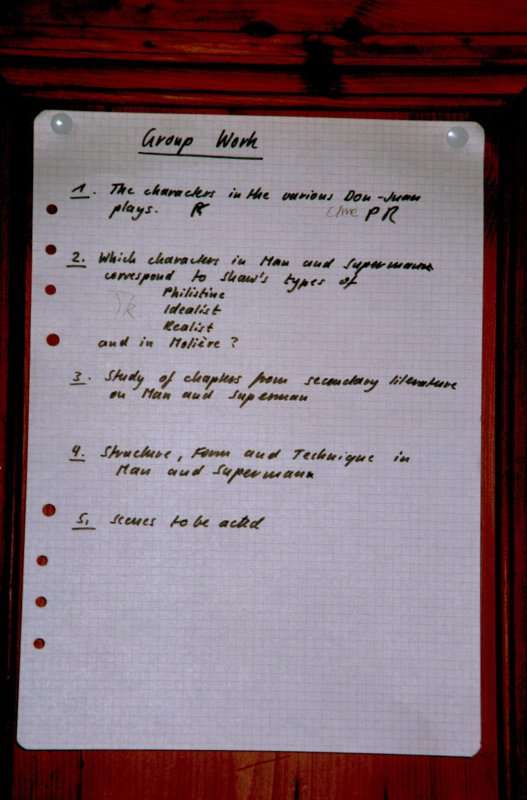 Group Work
1. The characters in the various Don-Juan
plays. R Clive PR
2. Which characters in Man and Superman
correspond to Shaw's types of
Philistine
Idealist
Realist
and in Molière?
3. Study of chapters from secondary literature
on Man and Superman
4. Structure, Form and Technique in
Man and Superman
5. Scenes to be acted